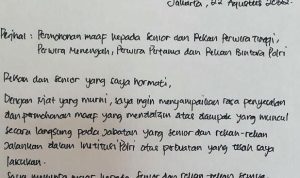 Jakarta, 22 Agustus 2022
Perihal : Permohonan maaf kepada Senior dan Rekan Perwira Tinggi,
Perwira Menengah, Perwira Pertama dan Rekan Bintara Polri
Rekan dan Senior yang saya hormati,
Dengan niat yang murni, saya ingin menyampaikan rasa penyesalan
dan permohonan maaf yang mendalam atas dampak yang muncul
secara langsung pada jabatan yang senior dan rekan-rekan
jalankan dalam institusi Polri atas perbuatan yang telah saya
lakukan.